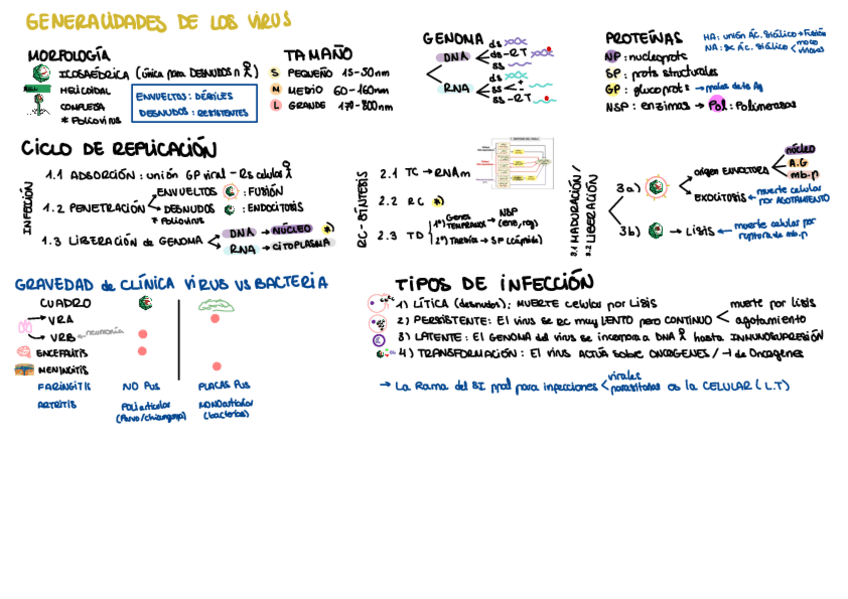 GENERALIDADES DE LOS VIRUS
MORFOLOGÍA
ICOSAÉDRICA (única para DESNUDOS
HELICOIDAL
COMPLEJA
* POLIOVIRUS
ENVUELTOS: DÉBILES
DESNUDOS: RESISTENTES
TAMAÑO
S PEQUEÑO 15-50nm
M MEDIO 60-160nm
L GRANDE 170-300nm
GENOMA
DNA
ds
ds-RT
ss
RNA
ds
ss + -
ss-RT
PROTEÍNAS
NP: nucleoprots
SP: prots structurales
GP: glucoprots →
NSP: enzimas → Pol: Polimerasas
HA: unión Ác. Siálico + Fusión
NA: Ác. Siálico moco
CICLO DE REPLICACIÓN
INFECCIÓN
1.1 ADSORCIÓN: unión GP viral - Rs celulas
1.2 PENETRACIÓN
ENVUELTOS : FUSIÓN
DESNUDOS : ENDOCITOSIS
* Poliovirus
1.3 LIBERACIÓN de GENOMA
DNA → NÚCLEO *)
RNA → CITOPLASMA
RC-SÍNTESIS
2.1 TC → RNAm
2.2 RC *)
2.3 TD
1º) Genes TEMPRANOS → NSP
2º) TARDÍA → SP (cápside)
3.1 MADURACIÓN/
3.2 LIBERACIÓN
3a)
origen ENVOLTURA
núcleo
A.G
mb.p
EXOCITOSIS ← muerte celular por AGOTAMIENTO
3b) → LISIS ← muerte celular por ruptura de mb.p
GRAVEDAD de CLÍNICA VIRUS VS BACTERIA
CUADRO
VRA
VRB neumonía
ENCEFALITIS
MENINGITIS
FARINGITIS NO PUS PLACAS PUS
ARTRITIS Poliarticular MONOarticular
(bacterias)
TIPOS DE INFECCIÓN
1) LÍTICA (desnudos): MUERTE celular por LISIS
2) PERSISTENTE: El virus se RC muy LENTO pero CONTINUO
muerte por lisis
agotamiento
3) LATENTE: El GENOMA del virus se incorpora a DNA hasta INMUNOSUPRESIÓN
4) TRANSFORMACIÓN: El virus ACTÚA sobre ONCOGENES / de Oncogenes
→ La Rama del SI ppal para infecciones virales parasitarias es la CELULAR (L.T)